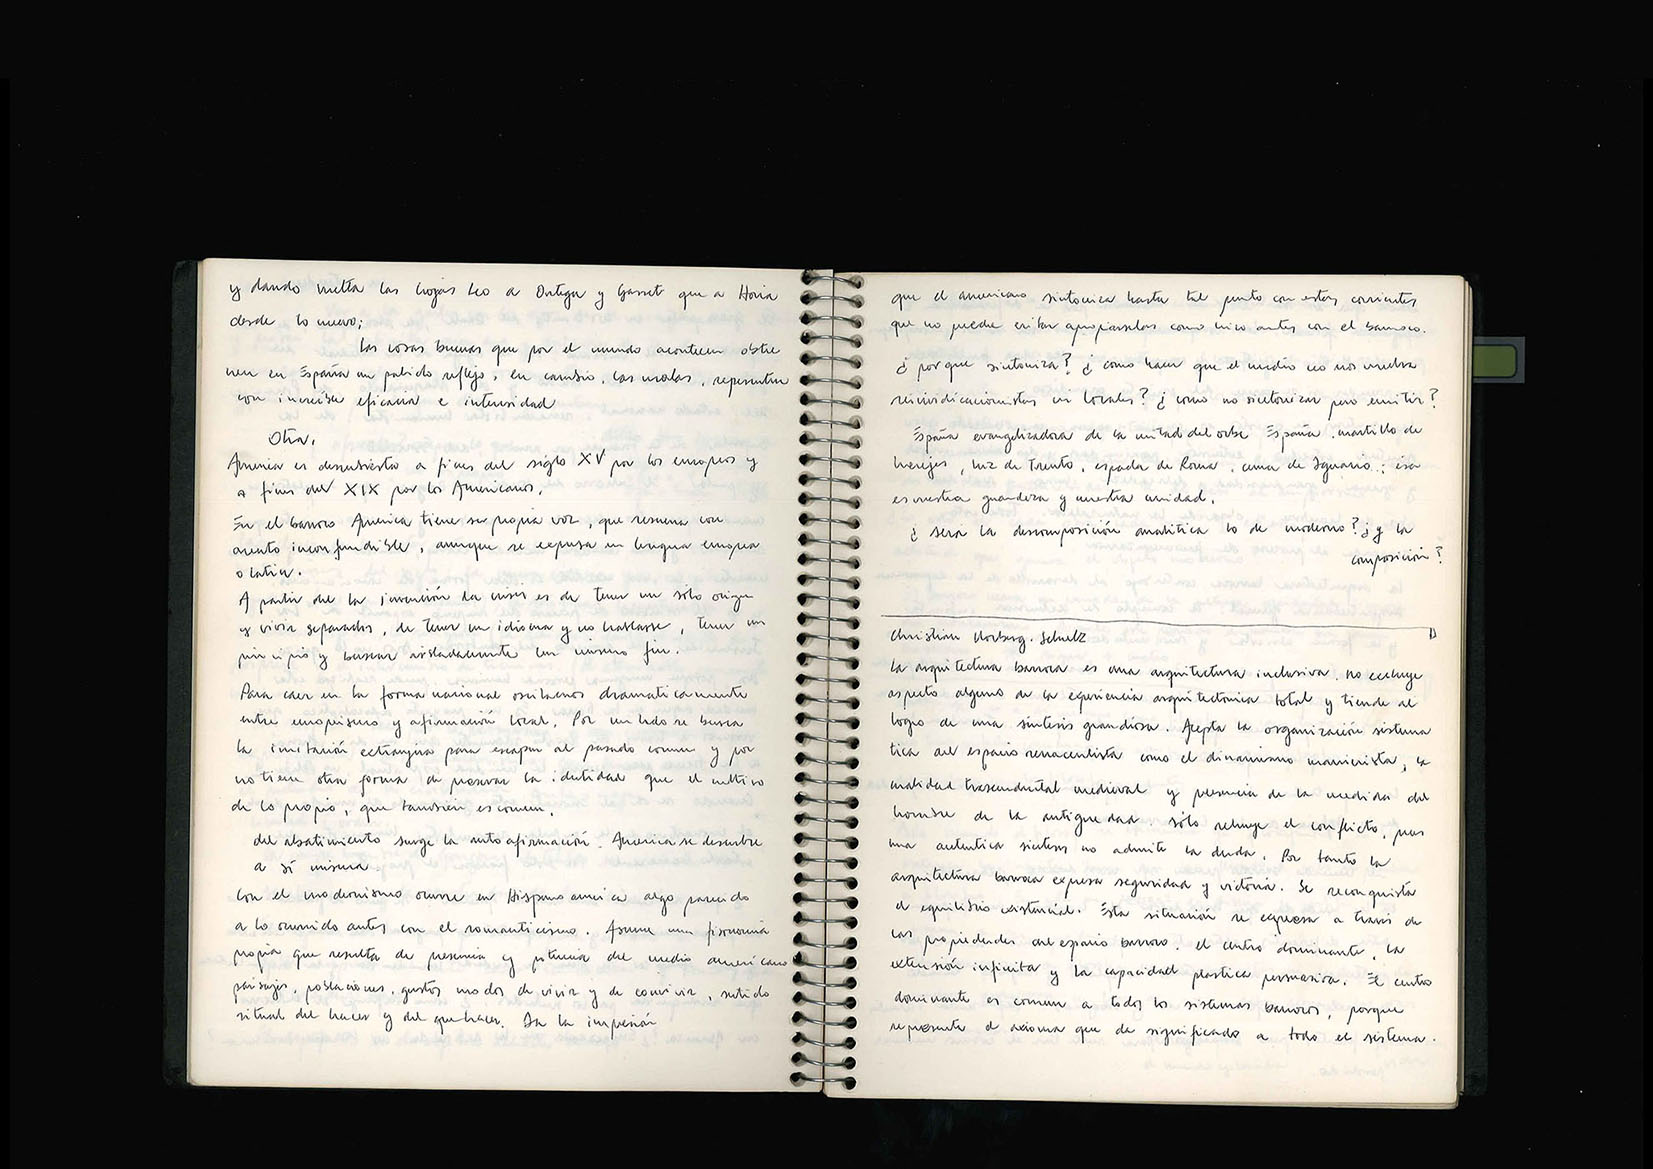 y dando vuelta las hojas leo a Ortega y Gasset que a
desde lo nuevo;
las cosas buenas que por el mundo acontecen obtie
nen en España un palido reflejo, en cambio, las malas, repercuten
con increible eficacia e intensidad
Otra.
America es descubierta a fines del siglo XV por los europeos y
a fines del XIX por los Americanos.
En el barroco America tiene su propia voz, que resuena con
acento inconfundible, aunque se expresa en lengua europea
o latin.
A partir de la invención la crisis es de tener un solo origen
y vivir separados, de tener un idioma y no hablarse, tener un
principio y buscar aisladamente un mismo fin.
Para caer en la forma nacional oscilamos dramaticamente
entre europeismo y afirmación local. Por un lado se busca
la imitación extrangera para escapar al pasado comun y por
no tiene otra forma de preservar la identidad que el cultivo
de lo propio, que tambien es comun.
del abatimiento surge la autoafirmación. America se descubre
a sí misma.
Con el modernismo ocurre en Hispanoamerica algo parecido
a lo ocurrido antes con el romanticismo. Asume una fisonomia
propia que resulta de presencia y potencia del medio americano
paisajes, poblaciones, gustos modos de vivir y de convivir, sentido
ritual del hacer y del quehacer. Da la impresión
que el americano sintoniza hasta tal punto con estas corrientes
que no puede evitar apropiarselas como hizo antes con el barroco.
¿por que sintoniza? ¿como hacer que el medio no nos vuelva
reivindicacionistas ni locales? ¿como no sintonizar pero emitir?
España evangelizadora de la mitad del orbe España martillo de
herejes, luz de Trento, espada de Roma, cuna de Ignacio; esa
es nuestra grandeza y nuestra unidad.
¿sera la descomposición analitica lo de moderno? ¿y la
composición?
Christian Norberg. Schulz
la arquitectura barroca es una arquitectura inclusiva. no excluye
aspecto alguno de la experiencia arquitectonica total y tiende al
logro de una sintesis grandiosa. Acepta la organización sistema
tica del espacio renacentista como el dinamismo manierista, la
cualidad trascendental medieval y presencia de la medida del
hombre de la antiguedad. Sólo rehuye el conflicto, pues
una autentica sintesis no admite la duda. Por tanto la
arquitectura barroca expresa seguridad y victoria. Se reconquista
el equilibrio existencial. Esta situación se expresa a través de
las propiedades del espacio barroco. el centro dominante, la
extensión infinita y la capacidad plastica persuasiva. El centro
dominante es comun a todos los sistemas barrocos, porque
representa el axioma que da significado a todo el sistema.